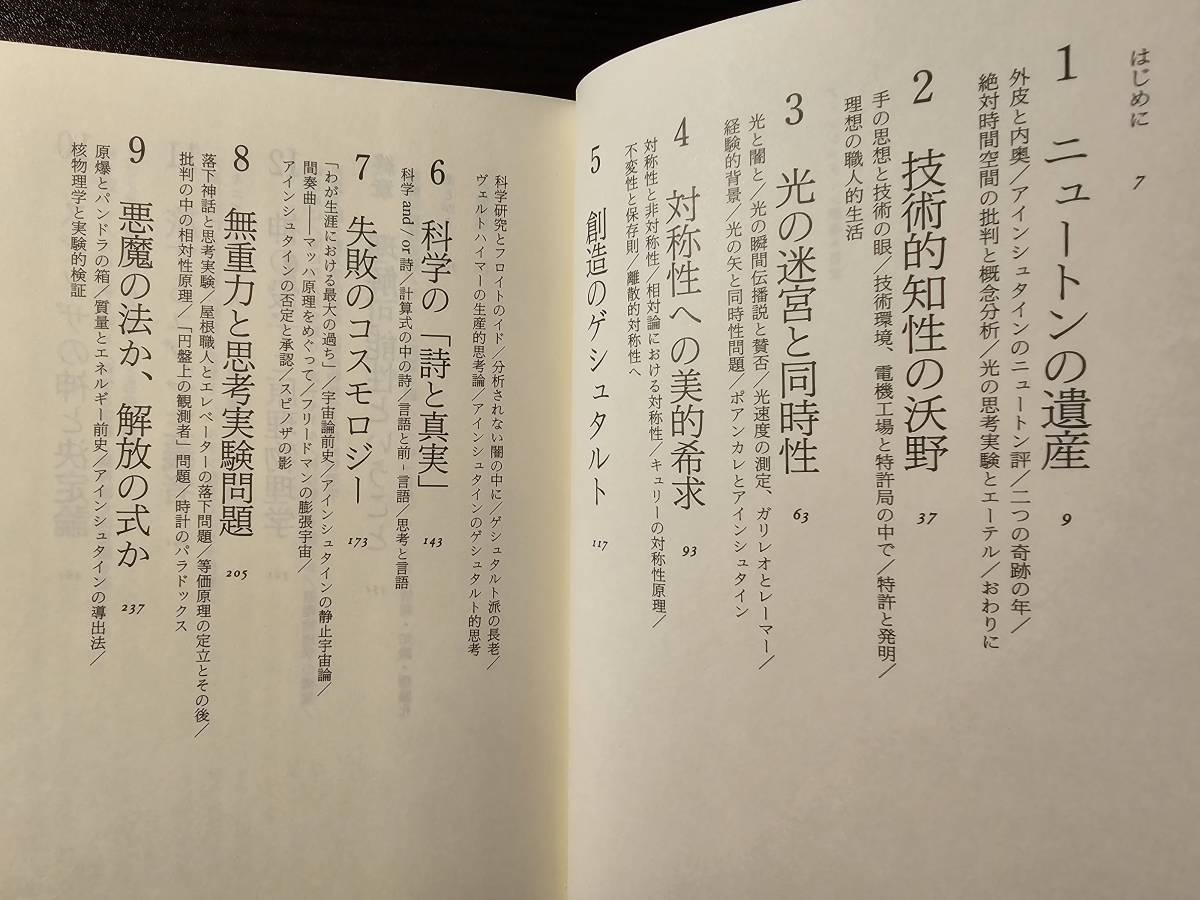 はじめに 7
1 ニュートンの遺産 9
外皮と内奥／アインシュタインのニュートン評／二つの奇跡の年／
絶対時間空間の批判と概念分析／光の思考実験とエーテル／おわりに
2 技術的知性の沃野 37
手の思想と技術の眼／技術環境、電機工場と特許局の中で／特許と発明／
理想の職人的生活
3 光の迷宮と同時性 63
光と闇と／光の瞬間伝播説と賛否／光速度の測定、ガリレオとレーマー／
経験的背景／光の矢と同時性問題／ポアンカレとアインシュタイン
4 対称性への美的希求 93
対称性と非対称性／相対論における対称性／キュリーの対称性原理／
不変性と保存則／離散的対称性へ
5 創造のゲシュタルト 117
科学研究とフロイトのイド／分析されない闇の中に／ゲシュタルト派の長老／
ヴェルトハイマーの生産的思考論／アインシュタインのゲシュタルト的思考
6 科学の「詩と真実」 143
科学 and / or 詩／計算式の中の詩／言語と前‐言語／思考と言語
7 失敗のコスモロジー 173
「わが生涯における最大の過ち」／宇宙論前史／アインシュタインの静止宇宙論／
間奏曲――マッハ原理をめぐって／フリードマンの膨張宇宙／
アインシュタインの否定と承認／スピノザの影
8 無重力と思考実験問題 205
落下神話と思考実験／屋根職人とエレベーターの落下問題／等価原理の定立とその後／
批判の中の相対性原理／「円盤上の観測者」問題／時計のパラドックス
9 悪魔の法か、解放の式か 237
原爆とパンドラの箱／質量とエネルギー前史／アインシュタインの導出法／
核物理学と実験的検証